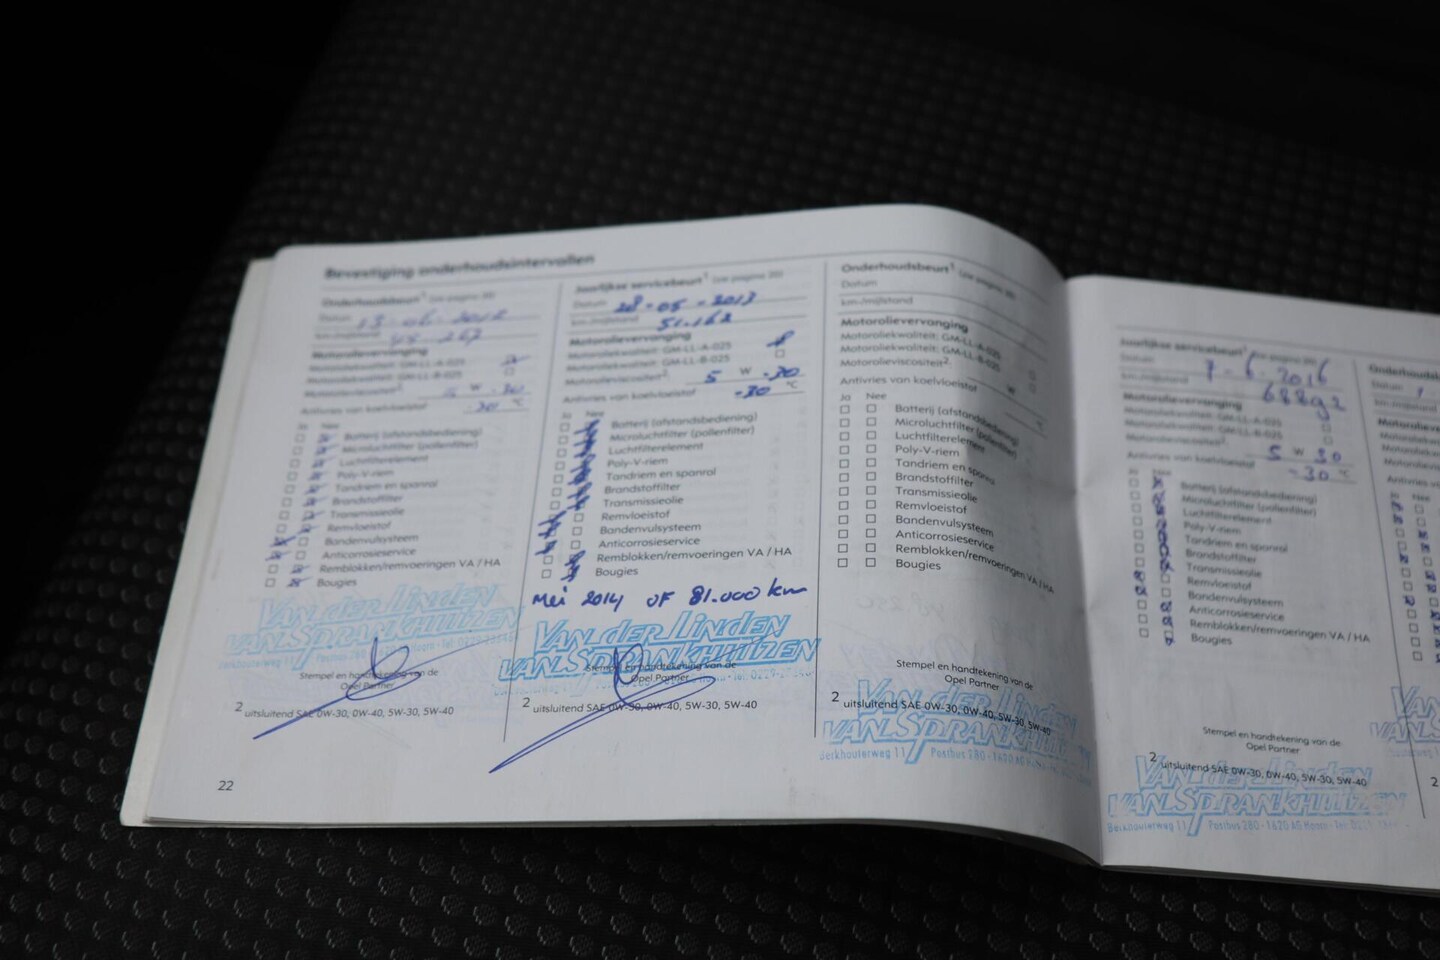 Bevestiging onderhoudsintervallen
Onderhoudsbeurt¹ (zie pagina 20)
Datum 13-06-2012
km/mijlstand
Motorolievervanging
Motoroliekwaliteit: GM-LL-A-025
Motoroliekwaliteit: GM-LL-B-025
Motorolieviscositeit² 5 W -30
Antivries van koelvloeistof -30 °C
Ja Nee
Batterij (afstandsbediening)
Microluchtfilter (pollenfilter)
Luchtfilterelement
Poly-V-riem
Tandriem en spanrol
Brandstoffilter
Transmissieolie
Remvloeistof
Bandenvulsysteem
Anticorrosieservice
Remblokken/remvoeringen VA / HA
Bougies
VAN DER LINDEN
VAN SPRANKHUIZEN
Berkhouterweg 11 / Postbus 280 - 1620 AG Hoorn - Tel. 0229
Stempel en handtekening van de
Opel Partner
2 uitsluitend SAE 0W-30, 0W-40, 5W-30, 5W-40
22
Jaarlijkse servicebeurt¹ (zie pagina 20)
Datum 28-05-2013
km-/mijlstand 51.162
Motorolievervanging
Motoroliekwaliteit: GM-LL-A-025
Motoroliekwaliteit: GM-LL-B-025
Motorolieviscositeit²: 5 W -30
Antivries van koelvloeistof -30 °C
Ja Nee
Batterij (afstandsbediening)
Microluchtfilter (pollenfilter)
Luchtfilterelement
Poly-V-riem
Tandriem en spanrol
Brandstoffilter
Transmissieolie
Remvloeistof
Bandenvulsysteem
Anticorrosieservice
Remblokken/remvoeringen VA / HA
Bougies
Mei 2014 OF 81.000 km
VAN DER LINDEN
VAN SPRANKHUIZEN
Stempel en handtekening van de
Opel Partner
2 uitsluitend SAE 0W-30, 0W-40, 5W-30, 5W-40
Onderhoudsbeurt¹ (zie pagina 20)
Datum
km-/mijlstand
Motorolievervanging
Motoroliekwaliteit: GM-LL-A-025
Motoroliekwaliteit: GM-LL-B-025
Motorolieviscositeit². W
Antivries van koelvloeistof °C
Ja Nee
Batterij (afstandsbediening)
Microluchtfilter (pollenfilter)
Luchtfilterelement
Poly-V-riem
Tandriem en spanrol
Brandstoffilter
Transmissieolie
Remvloeistof
Bandenvulsysteem
Anticorrosieservice
Remblokken/remvoeringen VA / HA
Bougies
Stempel en handtekening van de
Opel Partner
VAN DER LINDEN
2 uitsluitend SAE 0W-30, 0W-40, 5W-30, 5W-40
VAN SPRANKHUIZEN
Berkhouterweg 11 / Postbus 280 - 1620 AG
Jaarlijkse servicebeurt¹ (zie pagina 20)
Datum 7-6-2016
km-/mijlstand 68892
Motorolievervanging
Motoroliekwaliteit: GM-LL-A-025
Motoroliekwaliteit: GM-LL-B-025
Motorolieviscositeit² 5 W 30
Antivries van koelvloeistof -30 °C
Ja Nee
Batterij (afstandsbediening)
Microluchtfilter (pollenfilter)
Luchtfilterelement
Poly-V-riem
Tandriem en spanrol
Brandstoffilter
Transmissieolie
Remvloeistof
Bandenvulsysteem
Anticorrosieservice
Remblokken/remvoeringen VA / HA
Bougies
Stempel en handtekening van de
Opel Partner
2 uitsluitend SAE 0W-30, 0W-40, 5W-30, 5W-40
VAN DER LINDEN
VAN SPRANKHUIZEN
Berkhouterweg 11 / Postbus 280 - 1620 AG Hoorn - Tel.
Datum
Ja Nee
2